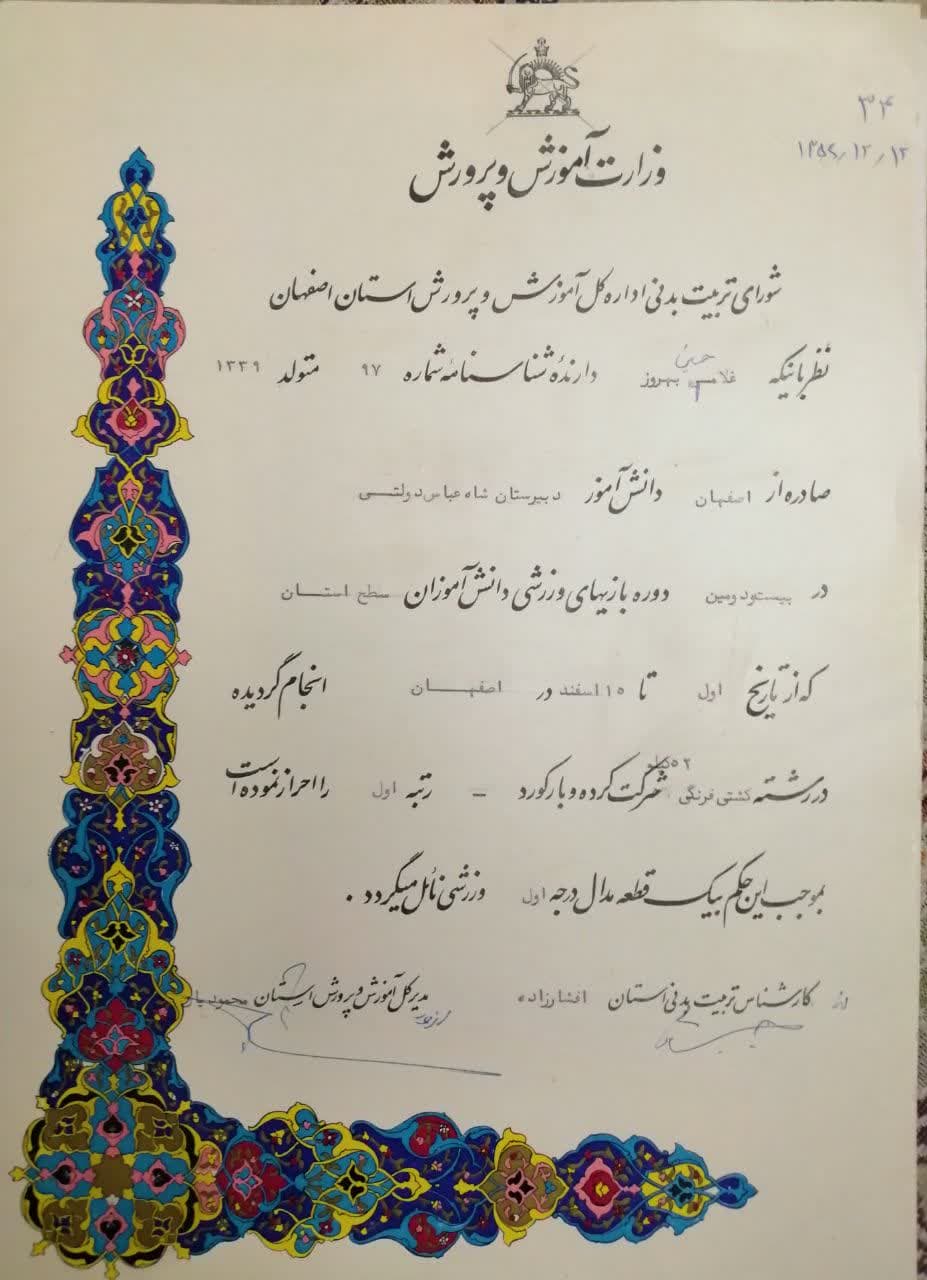 ۳۴
۱۳۵۶/۱۲/۱۲
وزارت آموزش و پرورش
شورای تربیت بدنی اداره کل آموزش و پرورش استان اصفهان
نظر باینکه غلامحسین بهروز دارندهٔ شناسنامهٔ شماره ۹۷ متولد ۱۳۳۹
صادره از اصفهان دانش آموز دبیرستان شاه عباس دولتی
در بیست و دومین دوره بازیهای ورزشی دانش آموزان سطح استان
که از تاریخ اول تا ۱۵ اسفند در اصفهان انجام گردیده
در رشته کشتی فرنگی ۵۲ کیلو شرکت کرده و با رکورد - رتبه اول را احراز نموده است
بموجب این حکم بیک قطعه مدال درجه اول ورزشی نائل میگردد .
کارشناس تربیت بدنی استان افشارزاده مدیر کل آموزش و پرورش استان